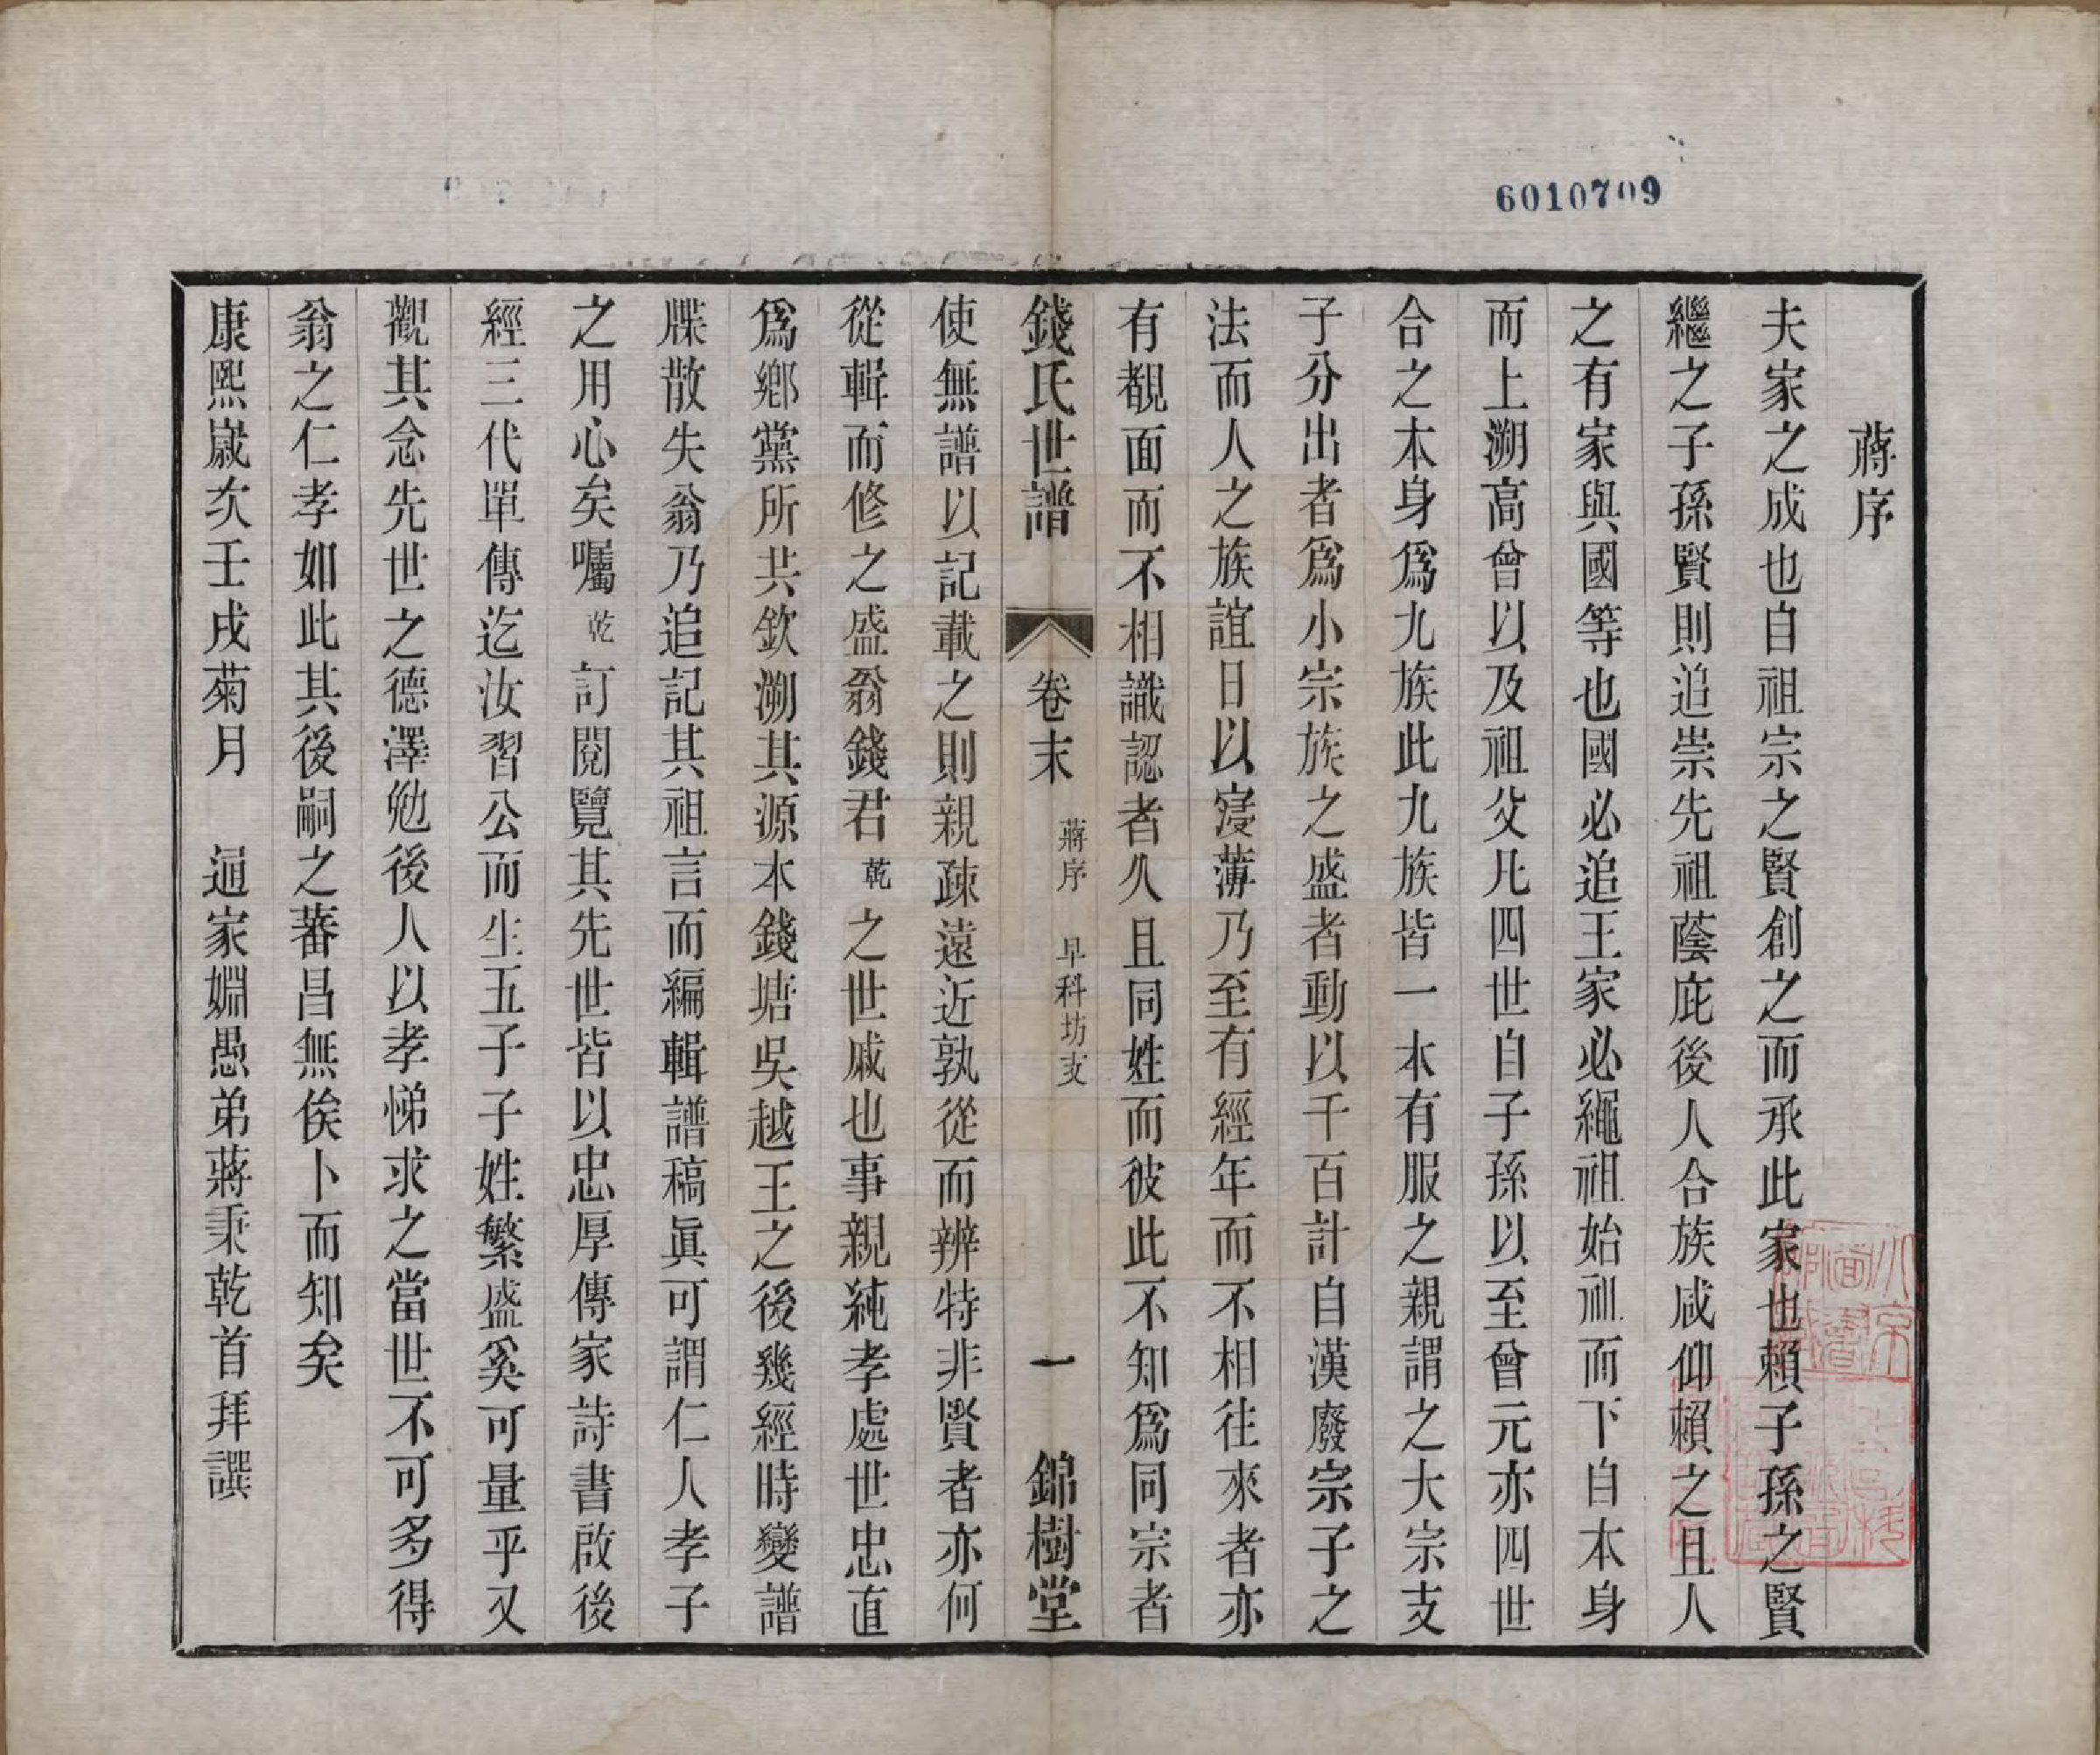 6010709
蔣序
夫家之成也自祖宗之賢創之而承此家也賴子孫之賢
繼之子孫賢則追崇先祖蔭庇後人合族咸仰賴之且人
之有家與國等也國必追王家必繩祖始祖而下自本身
而上溯高曾以及祖父凡四世自子孫以至曾元亦四世
合之本身爲九族此九族皆一本有服之親謂之大宗支
子分出者爲小宗族之盛者動以千百計自漢廢宗子之
法而人之族誼日以寖薄乃至有經年而不相往來者亦
有覩面而不相識認者久且同姓而彼此不知爲同宗者
錢氏世譜 卷末 蔣序 早科坊支 一 錦樹堂
使無譜以記載之則親疎遠近孰從而辨特非賢者亦何
從輯而修之盛翁錢君乾之世戚也事親純孝處世忠直
爲鄉黨所共欽溯其源本錢塘吳越王之後幾經時變譜
牒散失翁乃追記其祖言而編輯譜稿眞可謂仁人孝子
之用心矣囑乾訂閱覽其先世皆以忠厚傳家詩書啟後
經三代單傳迄汝習公而生五子子姓繁盛奚可量乎又
觀其念先世之德澤勉後人以孝悌求之當世不可多得
翁之仁孝如此其後嗣之蕃昌無俟卜而知矣
康熙嵗次壬戌菊月 通家婣愚弟蔣秉乾首拜譔